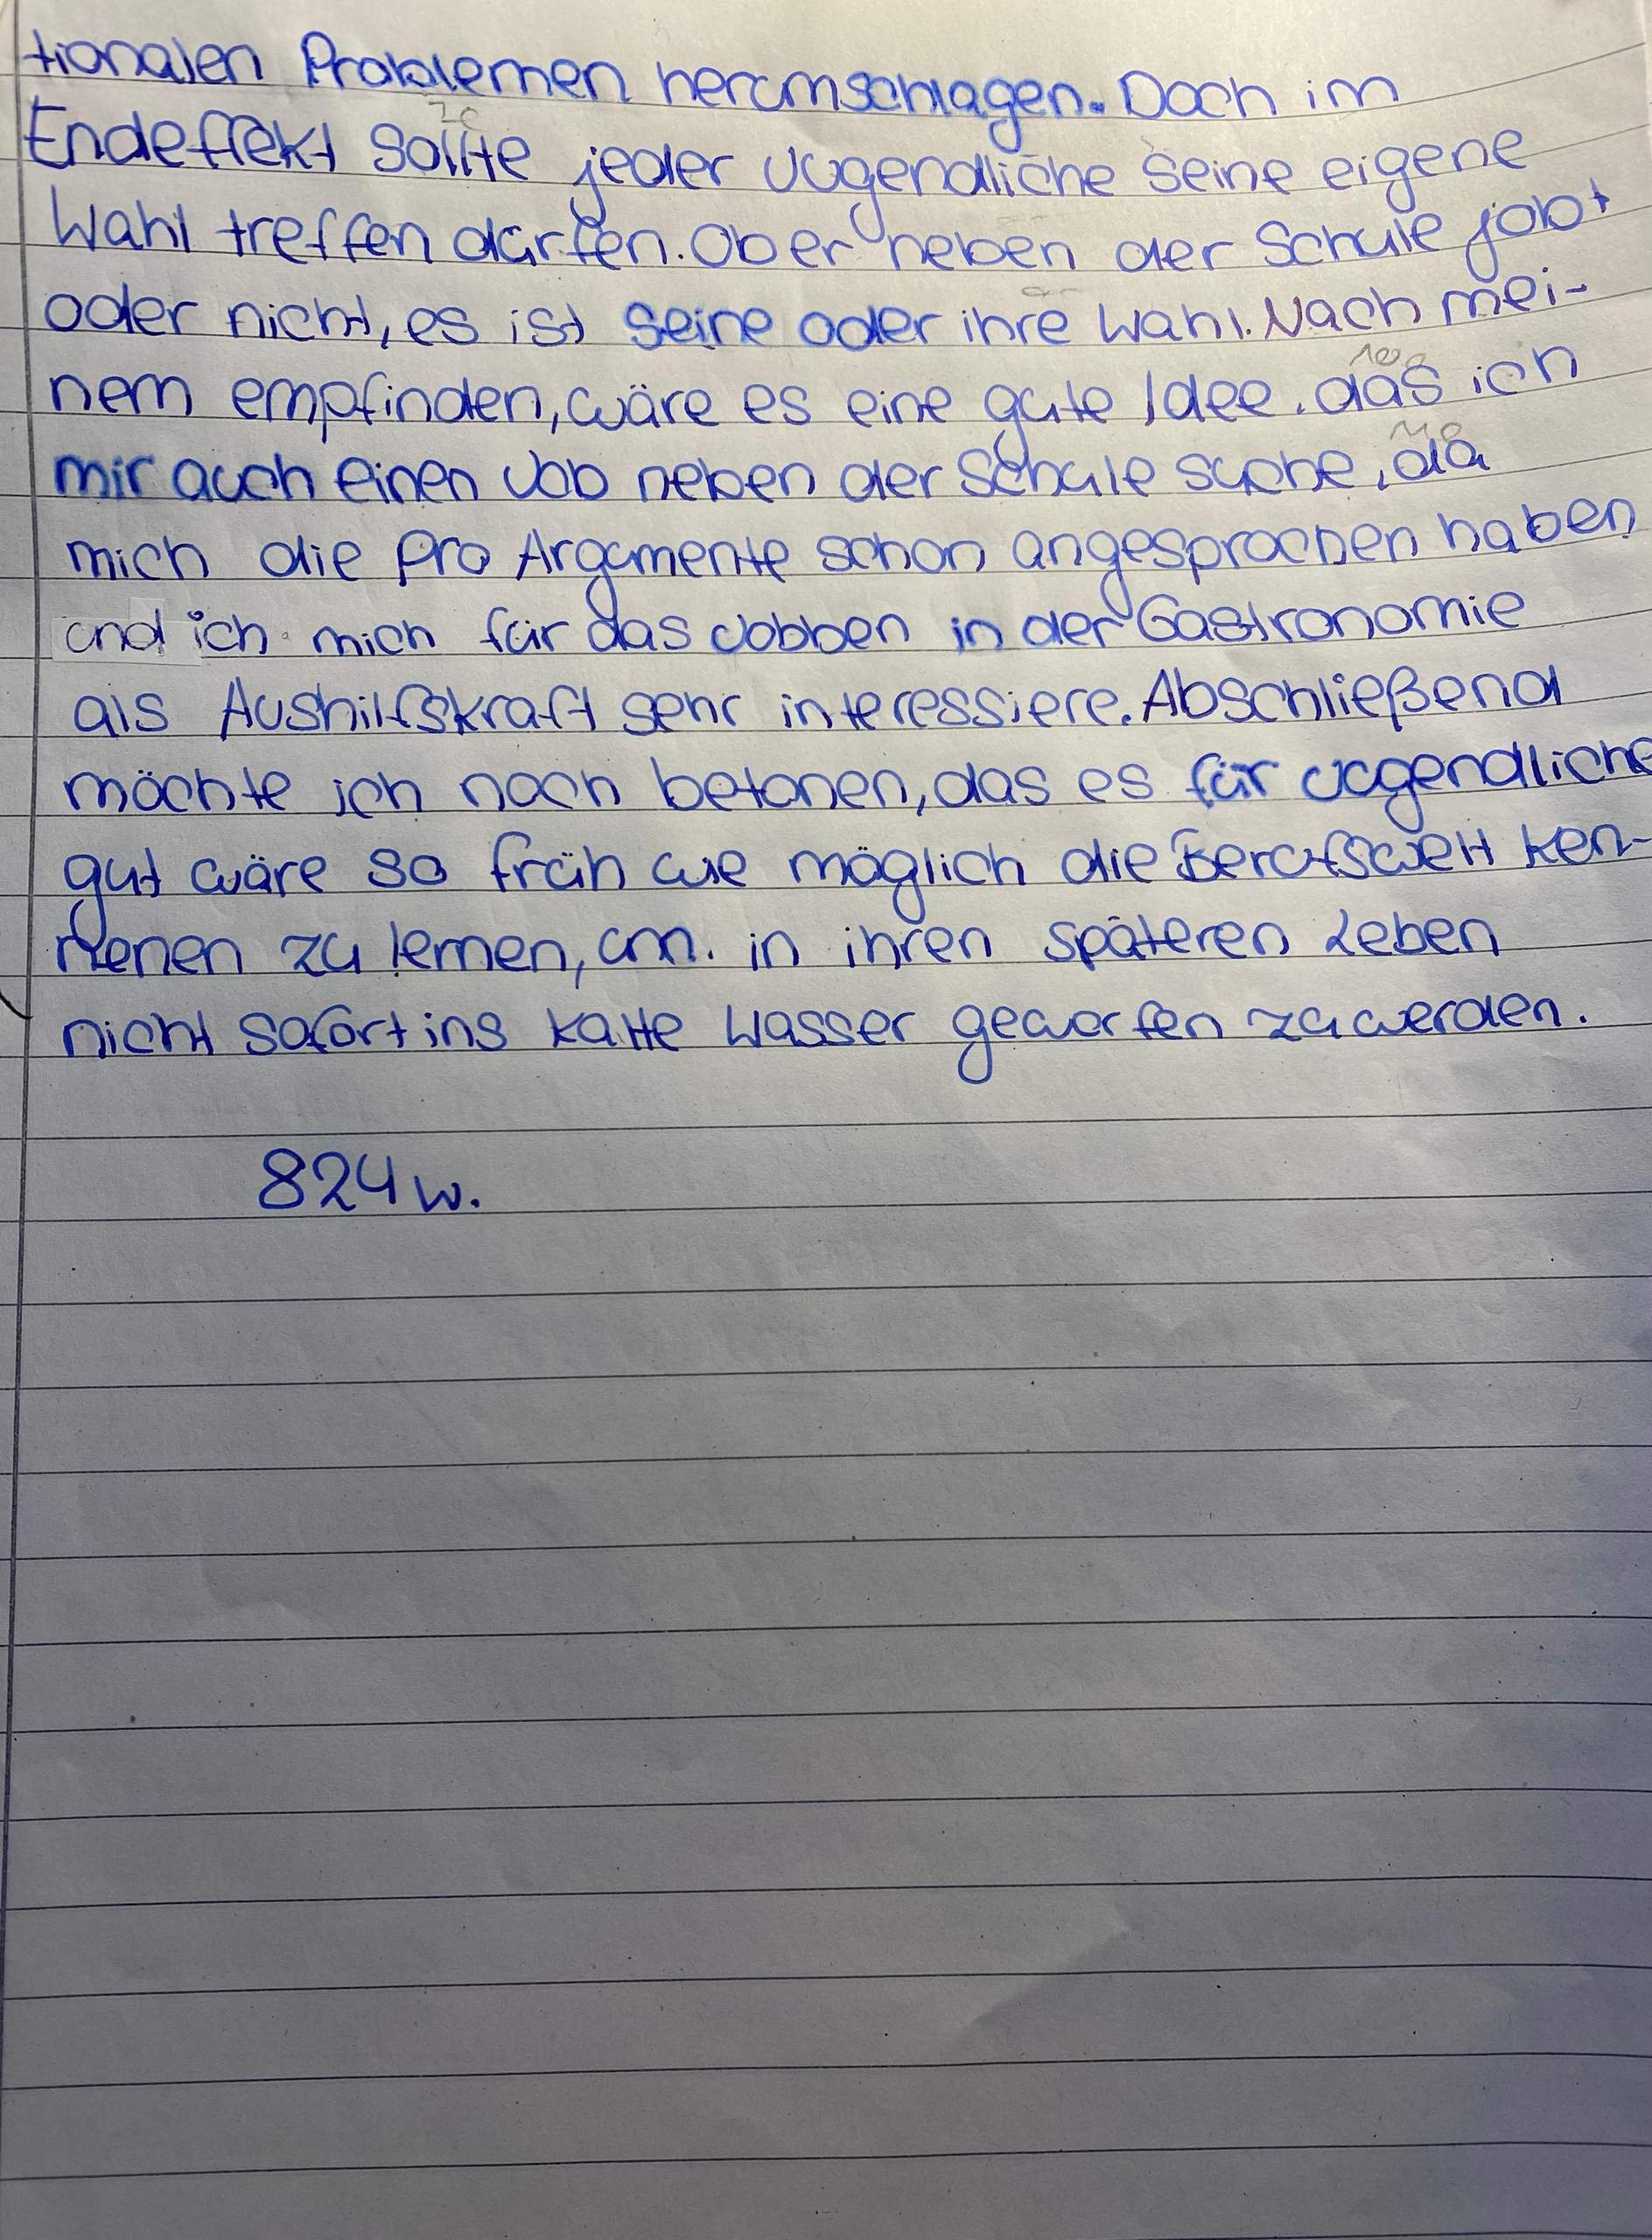 tionalen Problemen herumschlagen. Doch im
Endeffekt sollte jeder Jugendliche seine eigene
Wahl treffen dürfen. Ob er neben der Schule jobt
oder nicht, es ist seine oder ihre Wahl. Nach mei-
nem empfinden, wäre es eine gute Idee, das ich
mir auch einen Job neben der Schule suche, da
mich die pro Argumente schon angesprochen haben
und ich mich für das Jobben in der Gastronomie
als Aushilfskraft sehr interessiere. Abschließend
möchte ich noch betonen, das es für Jugendliche
gut wäre so früh wie möglich die Berufswelt ken-
nenen zu lernen, um in ihren späteren Leben
nicht sofort ins kalte Wasser geworfen zu werden.
824 w.